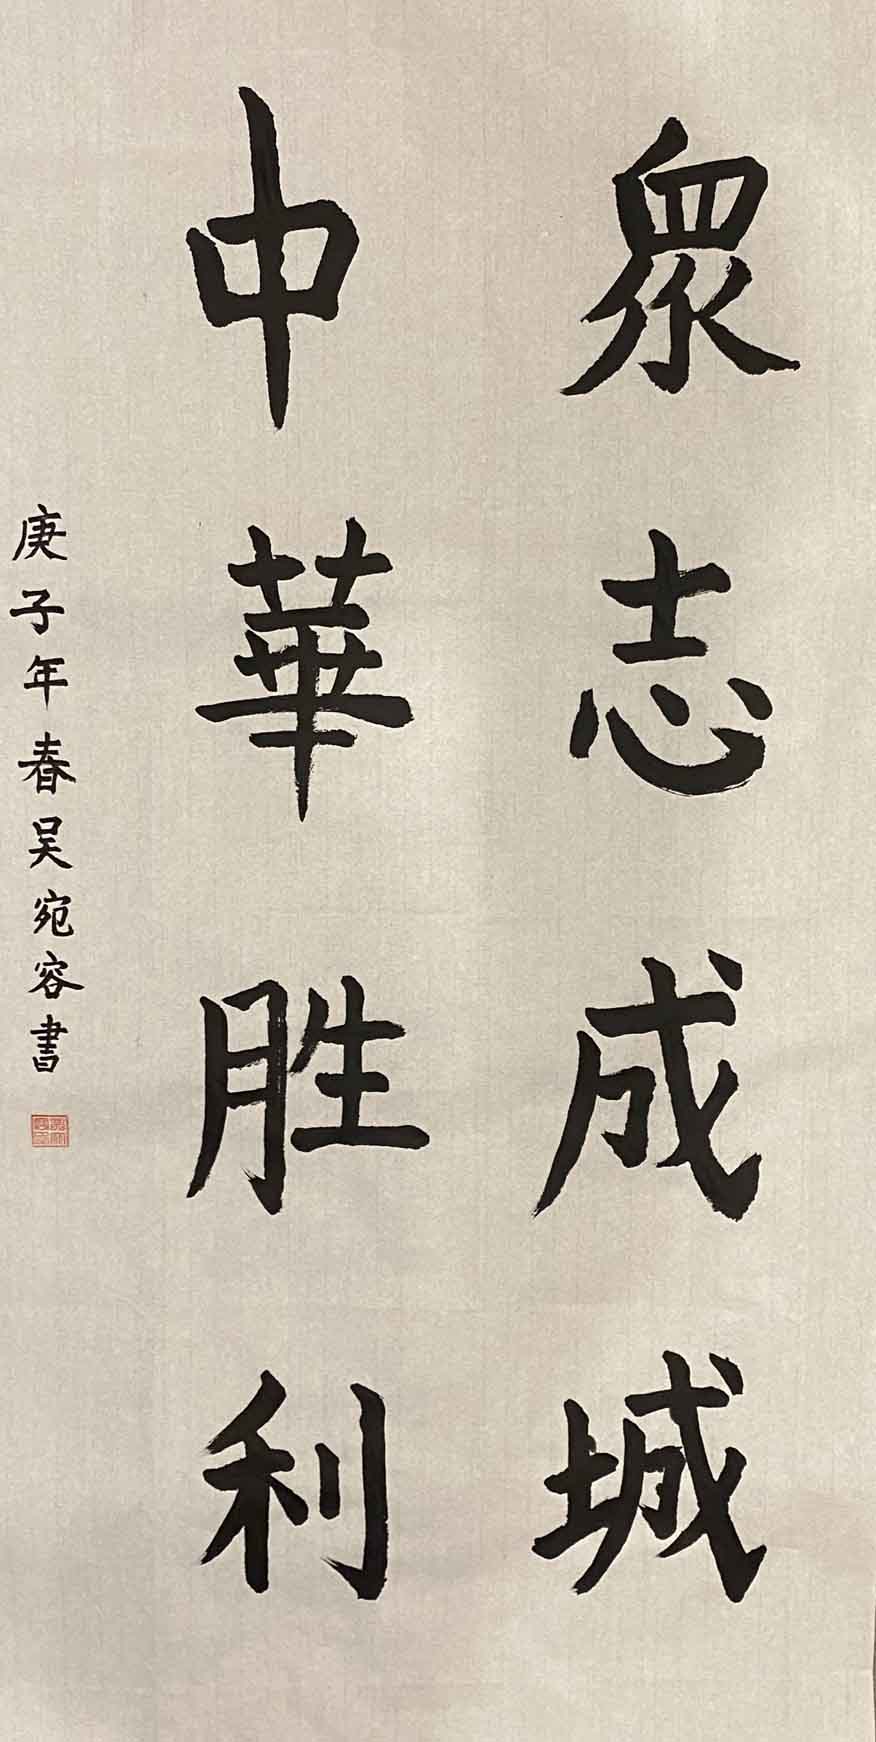 眾志成城
中華胜利
庚子年春吴宛容書